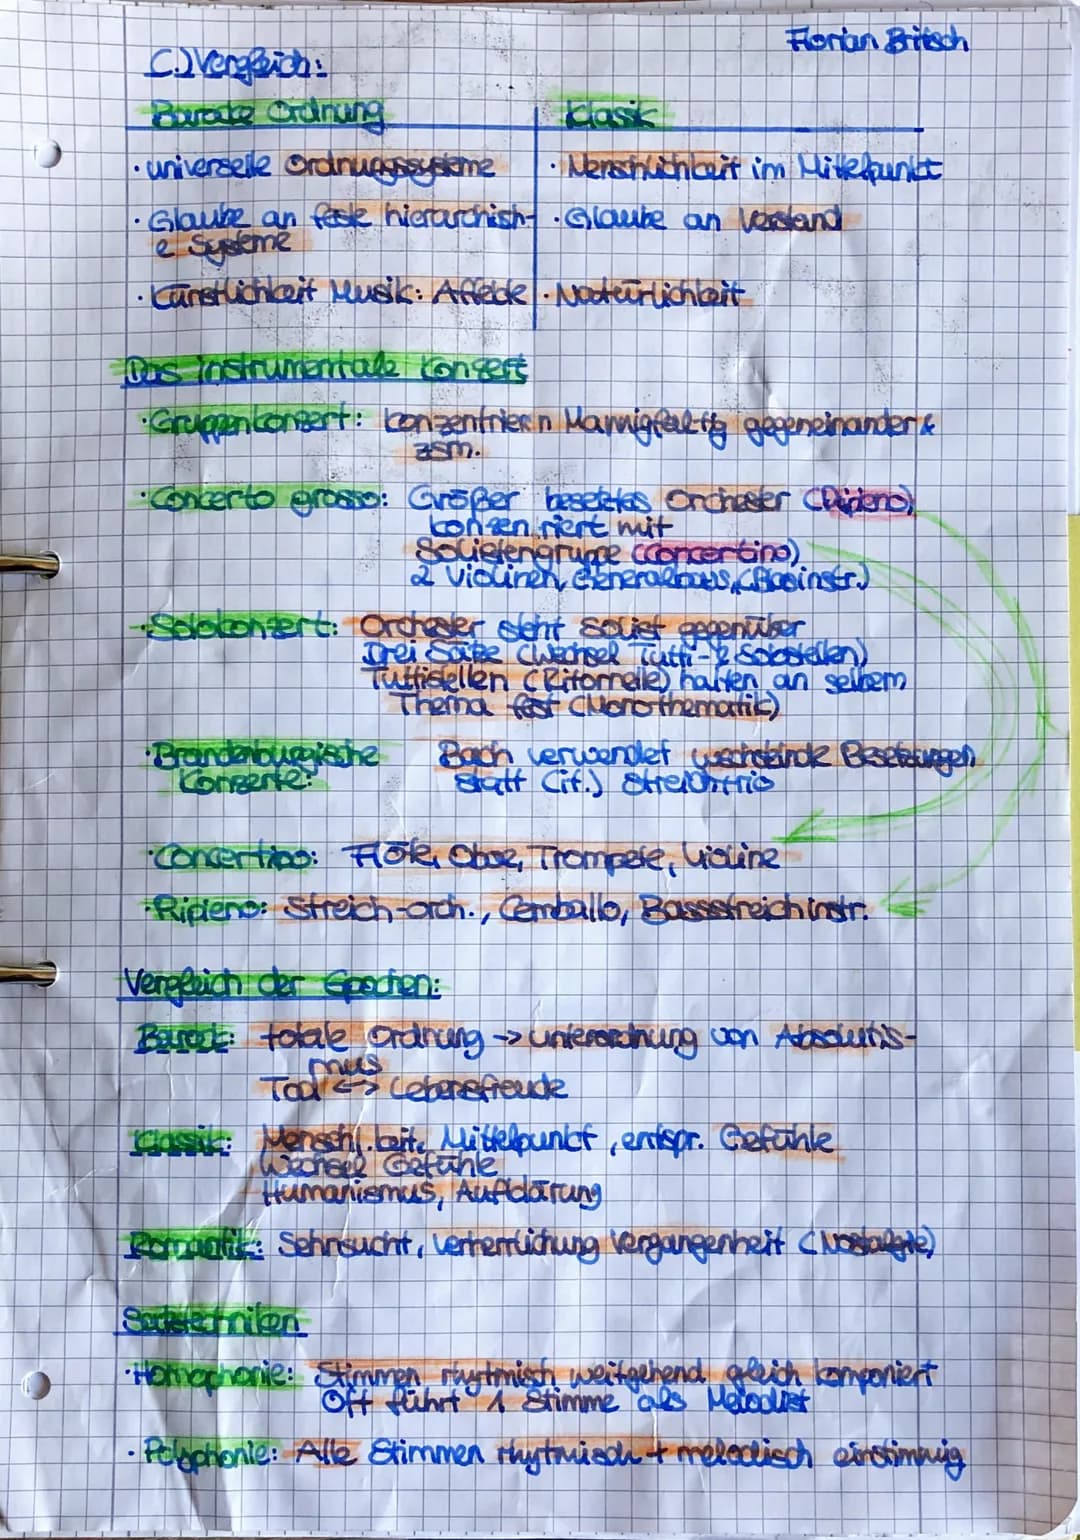 Florian Britsch
C.) Vergleich:
Barocke Ordnung | Klassik
· universelle Ordnugssysteme | · Menschlichkeit im Mittelpunkt
· Glaube an feste hierarchish- | · Glaube an Verstand
e Systeme
· Künstlichkeit Musik: Affekte | · Natürlichkeit
Das instrumentale Konzert
· Gruppenkonzert: konzentrier n Mannigfaltig gegeneinander &
zsm.
· Concerto grosso: Größer besetztes Orchester (Ripieno)
konzen riert mit
Solistengruppe (Concertino)
2 Violinen, Generalbass, (Bassinstr.)
· Solokonzert: Orchester steht Solist gegenüber
Drei Sätze (Wechsel Tutti- & Solostellen)
Tuttistellen (Ritornelle) halten an selbem
Thema fest (Monothematik)
· Brandenburgische Bach verwendet wechselnde Besetzungen
Konzerte: statt (it.) Streichtrio
· Concertino: Flöte, Oboe, Trompete, Violine
· Ripieno: Streich-orch., Cembalo, Bassstreichinstr.
Vergleich der Epochen:
Barock: totale Ordnung -> unterordnung von Absolutis-
mus
Tod <-> Lebensfreude
Klassik: Menschl.keit, Mittelpunkt, entspr. Gefühle
Wechsel Gefühle
Humanismus, Aufklärung
Romantik: Sehnsucht, Verherrlichung Vergangenheit (Nostalgie)
Satztechniken
· Homophonie: Stimmen rhytmisch weitgehend gleich komponiert
Oft führt 1 Stimme als Melodist
· Polyphonie: Alle Stimmen rhytmisch + melodisch einstimmig